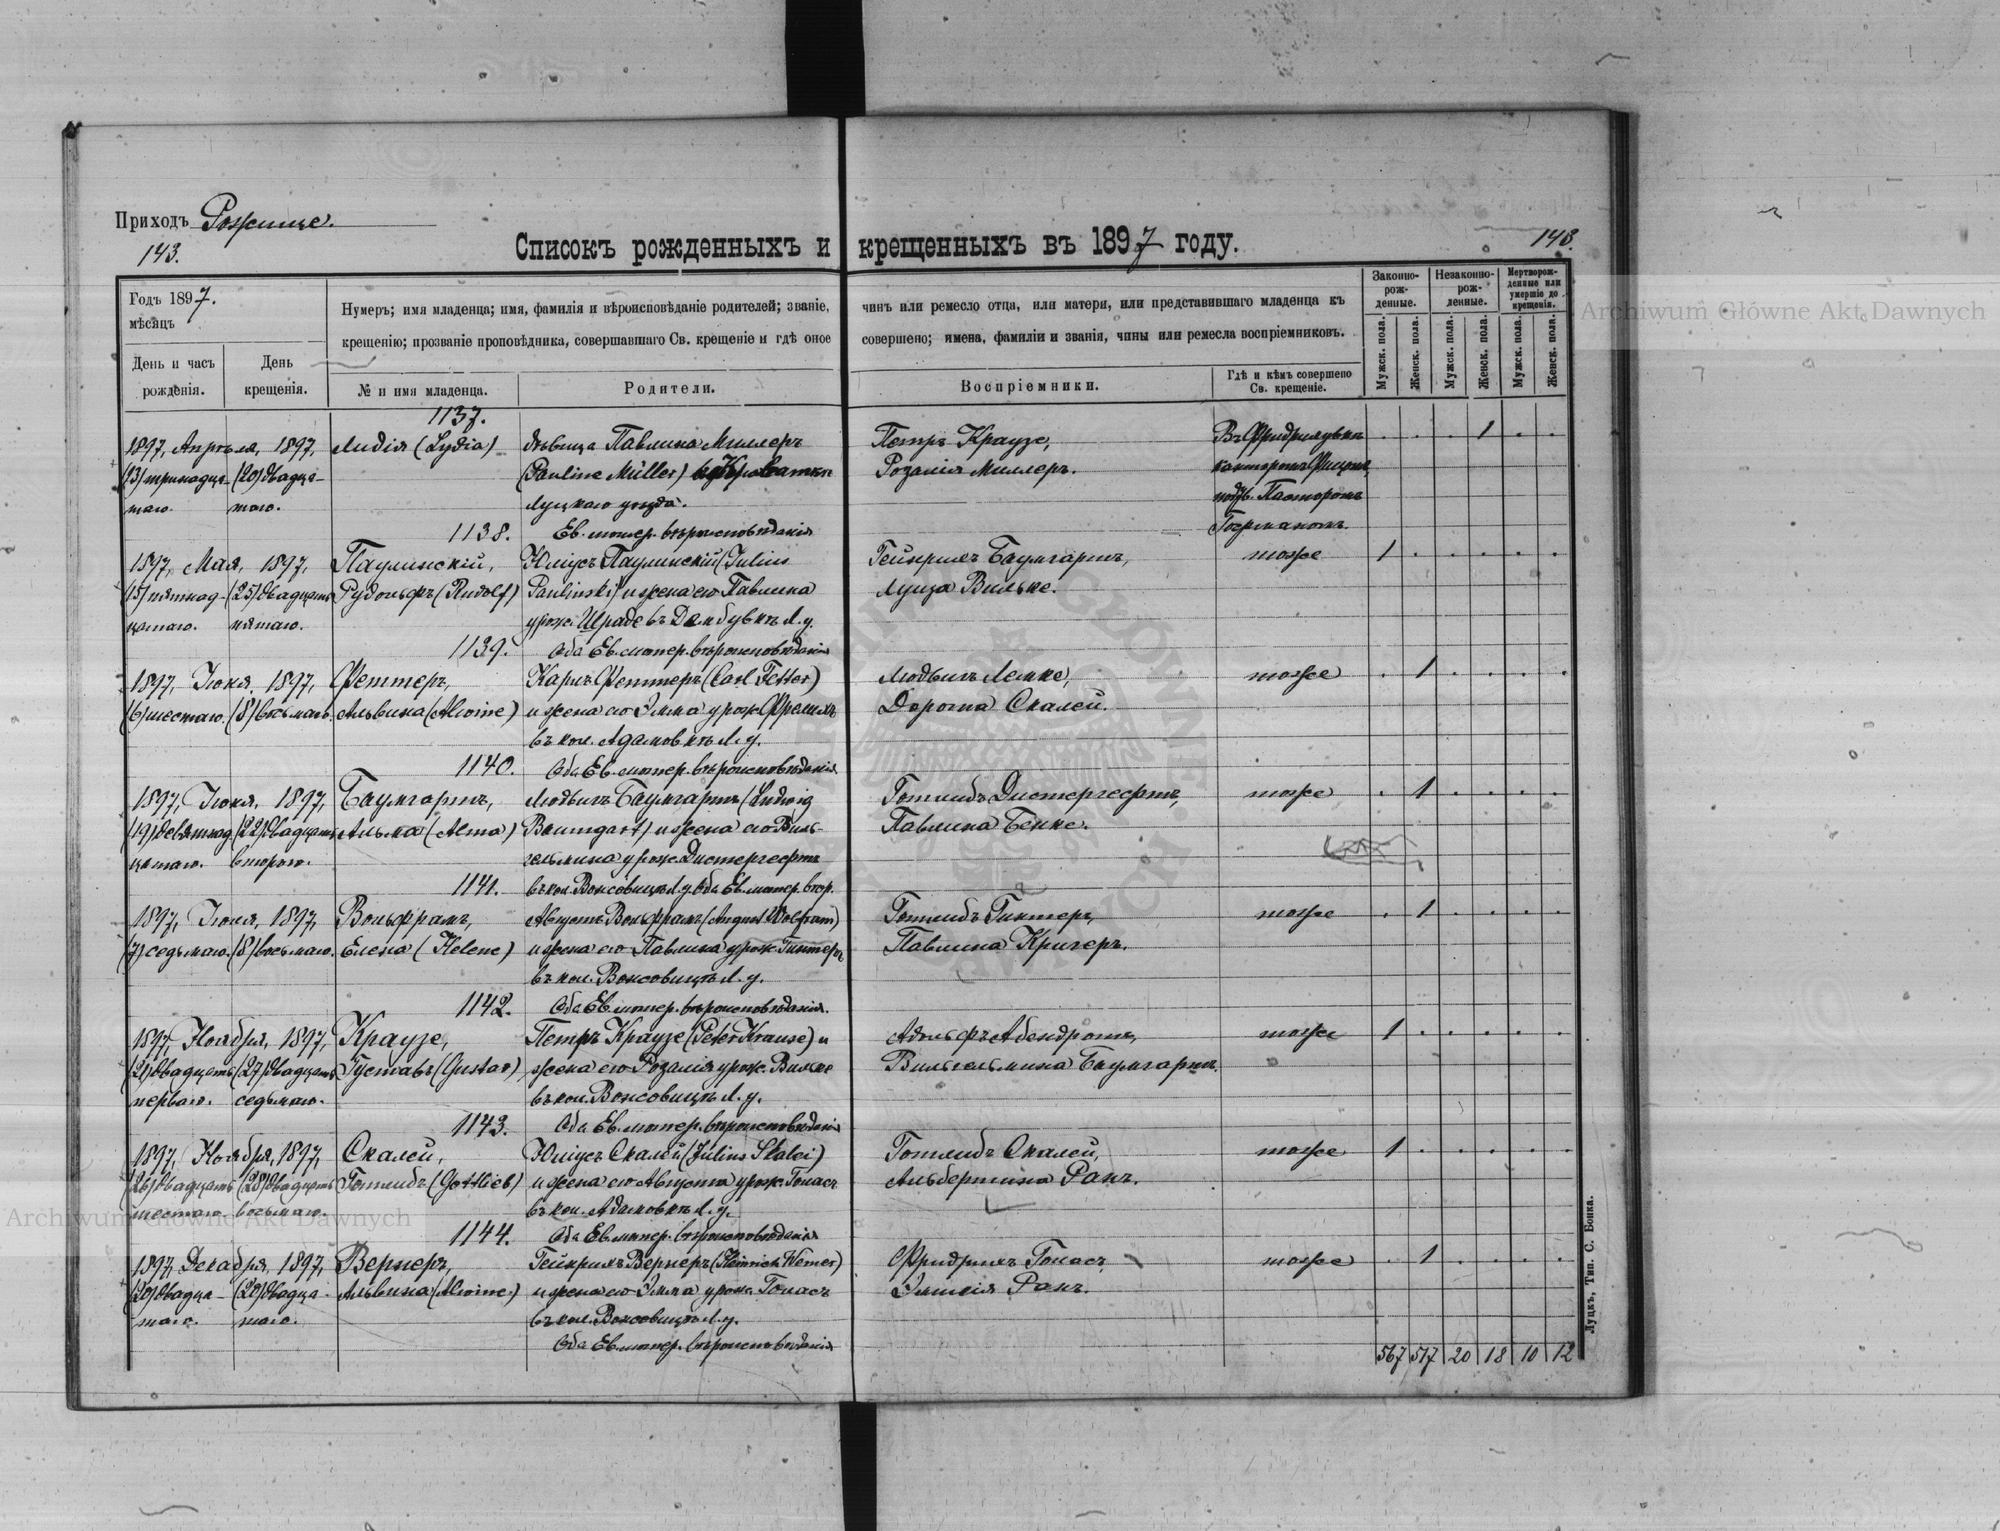 Приходъ Рожище.
143.
148.
Списокъ рожденныхъ и крещенныхъ въ 1897 году.
Годъ 1897.
мѣсяцъ
День и часъ рожденія.
День крещенія.
Нумеръ; имя младенца; имя, фамилія и вѣроисповѣданіе родителей; званіе, чинъ или ремесло отца, или матери, или представившаго младенца къ
крещенію; прозваніе проповѣдника, совершавшаго Св. крещеніе и гдѣ оное совершено; имена, фамиліи и званія, чины или ремесла воспріемниковъ.
№ и имя младенца.
Родители.
Воспріемники.
Гдѣ и кѣмъ совершено Св. крещеніе.
Законно-рож-денные.
Незаконно-рож-ленные.
Мертворож-денные или умершіе до крещенія.
Мужск. пола.
Женск. пола.
Мужск. пола.
Женск. пола.
Мужск. пола.
Женск. пола.
1137.
1897, Апрѣля, 1897, Лидія (Lydia) дѣвица Павлина Миллеръ Петръ Краузе, 1
(13) тринадца- (20) двадца- (Pauline Müller) Розалія Миллеръ.
таго. таго. Луцкаго уѣзда. Пасторомъ
1138. Ев. лютер. вѣроисповѣданія
1897, Мая, 1897, Паулинскій, Юліусъ Паулинскій (Julius Гейнрихъ Баумгартъ, тоже 1
(15) пятнад- (25) двадцать Рудольфъ (Rudolf) Paulinski) и жена его Павлина Луиза Вильке.
цатаго. пятаго. урож. Шраде въ Л. у.
1139. Оба Ев. лютер. вѣроисповѣданія
1897, Іюня, 1897, Феттеръ, Карлъ Феттеръ (Carl Fetter) Людвигъ Лемке, тоже 1
(6) шестаго. (8) восьмаго. Альвина (Alwine) и жена его Эмма урож. Фрелихъ Дорота Скалей.
въ кол. Адамовкѣ Л. у.
1140. Оба Ев. лютер. вѣроисповѣданія
1897, Іюня, 1897, Баумгартъ, Людвигъ Баумгартъ (Ludwig Готлибъ Дистергефтъ, тоже 1
(19) девятнад (22) двадцать Альма (Alma) Baumgart) и жена его Виль- Павлина Бенке.
цатаго. втораго. гельмина урож. Дистергефтъ
1141. въ кол. Вонсовицѣ Л. у. Оба Ев. лютер. вѣр.
1897, Іюля, 1897, Вольфрамъ, Августъ Вольфрамъ (August Wolfram) Готлибъ Гинтеръ, тоже 1
(7) седьмаго. (8) восьмаго. Елена (Helene) и жена его Павлина урож. Гинтеръ Павлина Кригеръ.
въ кол. Вонсовицѣ Л. у.
1142. Оба Ев. лютер. вѣроисповѣданія.
1897, Ноября, 1897, Краузе, Петръ Краузе (Peter Krause) и Адольфъ Абендротъ, тоже 1
(21) двадцать (27) двадцать Густавъ (Gustav) жена его Розалія урож. Вильке Вильгельмина Баумгартъ.
перваго. седьмаго. въ кол. Вонсовицѣ Л. у.
1143. Оба Ев. лютер. вѣроисповѣданія
1897, Ноября, 1897, Скалей, Юліусъ Скалей (Julius Skalei) Готлибъ Скалей, тоже 1
(26) двадцать (28) двадцать Готлибъ (Gottlieb) и жена его Августа урож. Гонасъ Альбертина Ранъ.
шестаго. восьмаго. въ кол. Адамовкѣ Л. у.
1144. Оба Ев. лютер. вѣроисповѣданія
1897, Декабря, 1897, Вернеръ, Гейнрихъ Вернеръ (Heinrich Werner) Фридрихъ Гонасъ, тоже 1
(20) двадца- (20) двадца- Альвина (Alwine) и жена его Эмма урож. Гонасъ Эмилія Ранъ.
таго. таго. въ кол. Вонсовицѣ Л. у.
Оба Ев. лютер. вѣроисповѣданія
567 517 20 18 10 12
Луцкъ, Тип. С. Бонка.
Archiwum Główne Akt Dawnych
Archiwum Główne Akt Dawnych